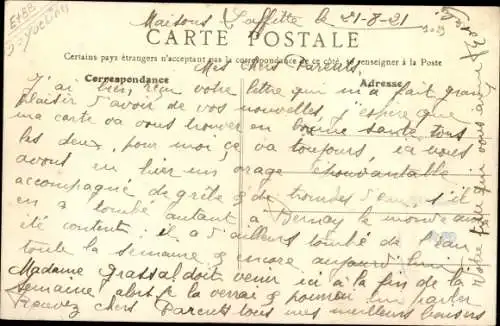 Maisons Laffitte le 21-8-21
CARTE POSTALE
Certains pays étrangers n'acceptant pas la correspondance de ce côté, se renseigner à la Poste
Mes chers Parents,
Correspondance
Adresse
J'ai bien reçu votre lettre qui m'a fait grand
plaisir d'avoir de vos nouvelles, j'espère que
ma carte va vous trouver en bonne santé tous
les deux, pour moi ça va toujours, ici nous
avons eu hier un orage épouvantable
accompagné de grêle & de trombes d'eau, s'il
en a tombé autant a Bernay le monde aura
été content; il a d'ailleurs tombé de l'eau
toute la semaine & encore aujourd'hui
Madame Grassal doit venir ici à la fin de la
semaine alors je la verrai & pourrai lui parler
Recevez chers Parents tous mes meilleurs baisers
Votre fils qui vous aime